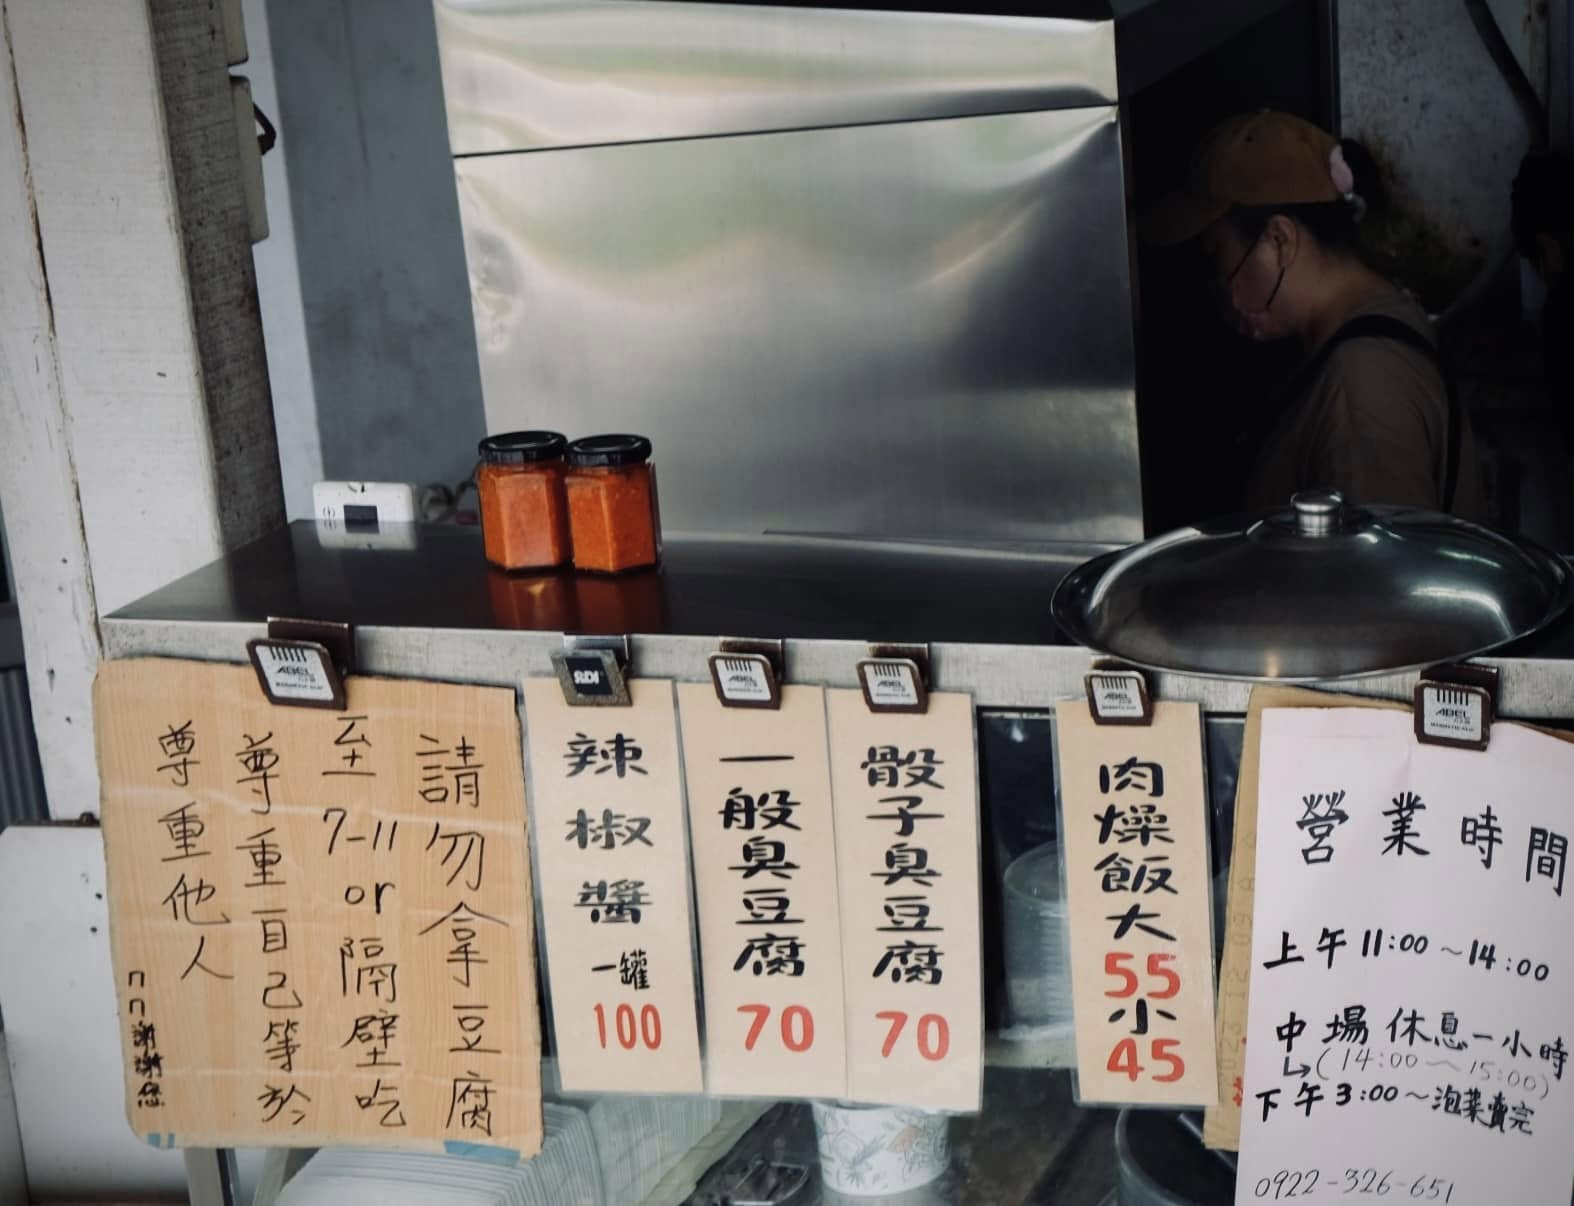 請勿拿豆腐
至7-11 or 隔壁吃
尊重自己等於
尊重他人
謝謝您
辣椒醬
一罐
100
一般臭豆腐
70
骰子臭豆腐
70
肉燥飯大
55
小
45
營業時間
上午11:00~14:00
中場休息一小時
(14:00~15:00)
下午3:00~泡菜賣完
0922-326-651
SDI
ABEL
ABEL
ABEL
ABEL
ABEL